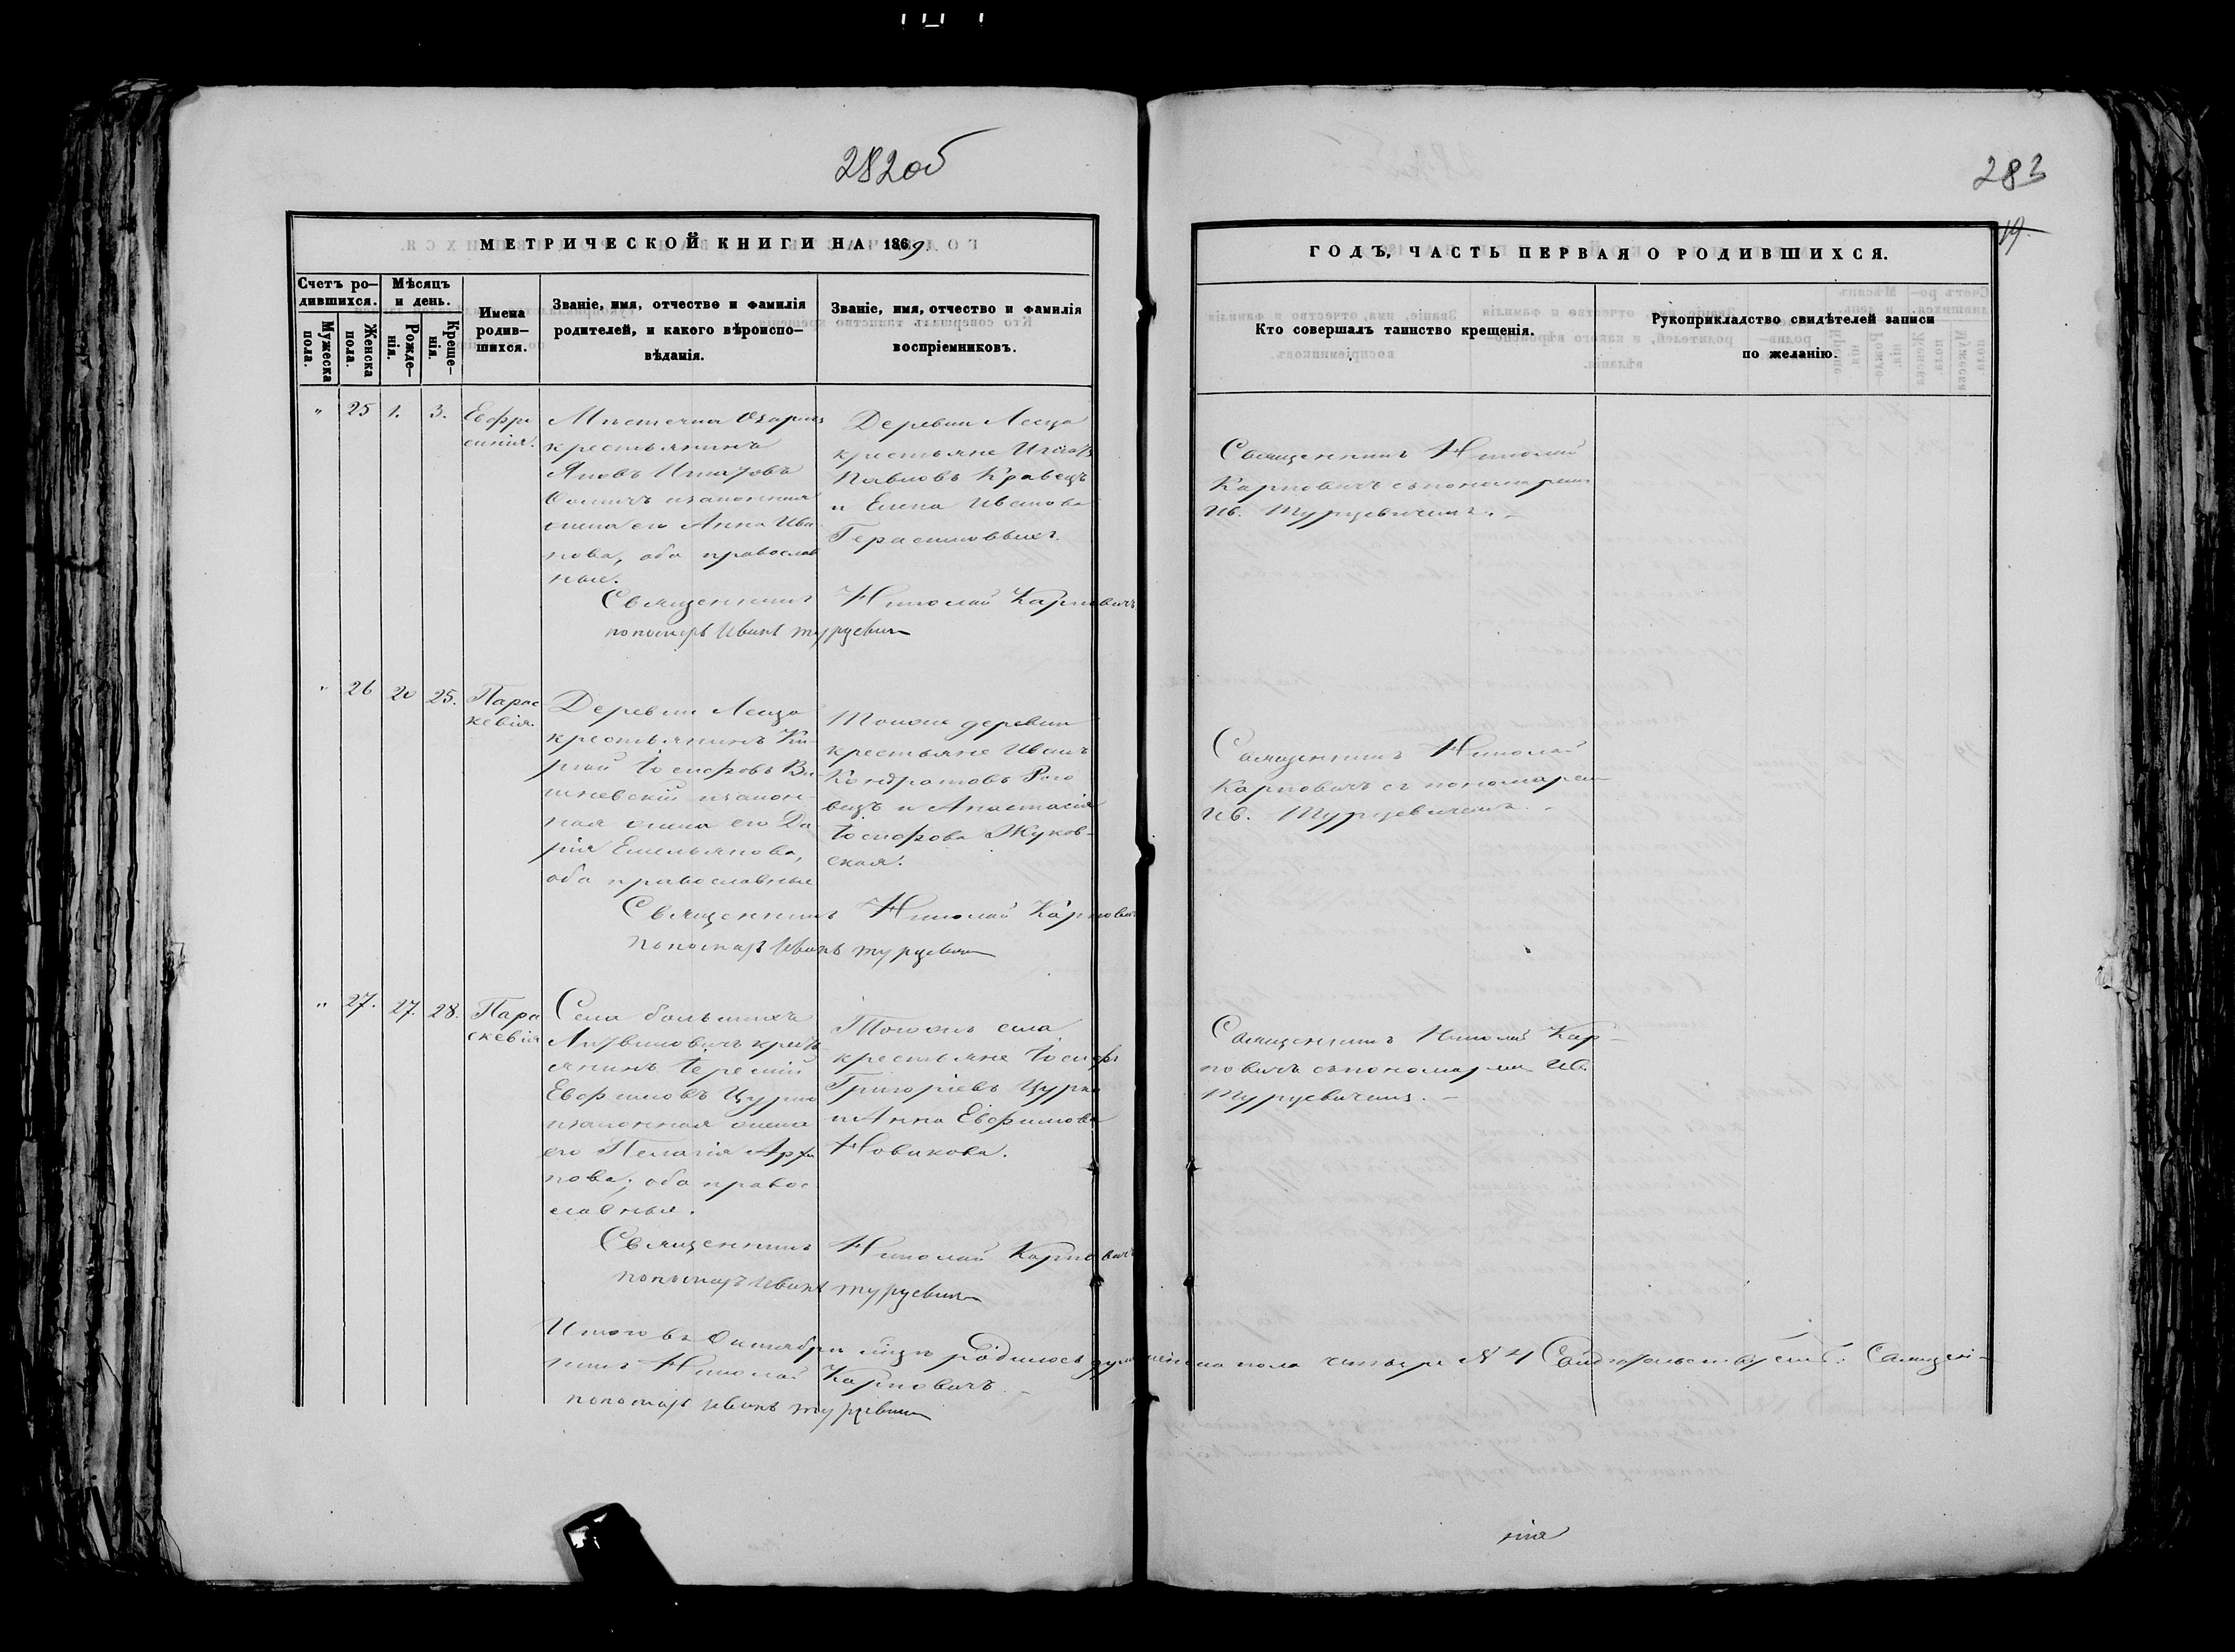 282об
МЕТРИЧЕСКОЙ КНИГИ НА 1869.
Счетъ ро-
дившихся.
Мужеска
пола.
Женска
пола.
Мѣсяцъ
и день.
Рожде-
нія.
Креще-
нія.
Имена
родив-
шихся.
Званіе, имя, отчество и фамилія
родителей, и какого вѣроиспо-
вѣданія.
Званіе, имя, отчество и фамилія
воспріемниковъ.
" 25 1. 3.
Евфро
синія.
Мѣстечка
крестьянинъ
Яковъ
законная
жена его Анна Ива
нова, оба православ
ные.
Деревни Лесца
крестьяне Игнатъ
Павловъ Кравецъ
и Елена Иванова
Герасимовыхъ.
Священникъ Николай Карповичъ
пономарь Иванъ Турцевич
" 26 20 25.
Парас
кевія.
Деревни Лесца
крестьянинъ Ки-
рилъ Іосифовъ Ви-
шневскій закон-
ная жена его Да
рія Емельянова,
оба православные
Тойже деревни
крестьяне Иванъ
Кондратовъ Рого
вецъ и Анастасія
Іосифова Жуков-
ская.
Священникъ Николай Карпович
пономарь Иванъ Турцевич
" 27. 27. 28.
Пара
скевія
Села большихъ
Литвиновичъ крест
янинъ
Евфимовъ Цурко
законная жена
его Пелагія Архи
пова, оба право
славные.
Тогоже села
крестьяне Іосифъ
Григоріевъ Цурко
и Анна Евфимова
Новикова.
Священникъ Николай Карповичъ
пономарь Иванъ Турцевич
Итого въ Октябрѣ мцѣ родилось женска пола четыре № 4 Священ-
никъ Николай Карповичъ.
пономарь Иванъ Турцевич
283
19.
ГОДЪ, ЧАСТЬ ПЕРВАЯ О РОДИВШИХСЯ.
Кто совершалъ таинство крещенія.
Рукоприкладство свидѣтелей записи
по желанію.
Священникъ Николай
Карповичъ съ пономаремъ
Ив. Турцевичемъ. -
Священникъ Николай
Карповичъ съ пономарем
Ив. Турцевичемъ. -
Священникъ Николай Кар-
повичъ съ пономарем Ив.
Турцевичемъ. -